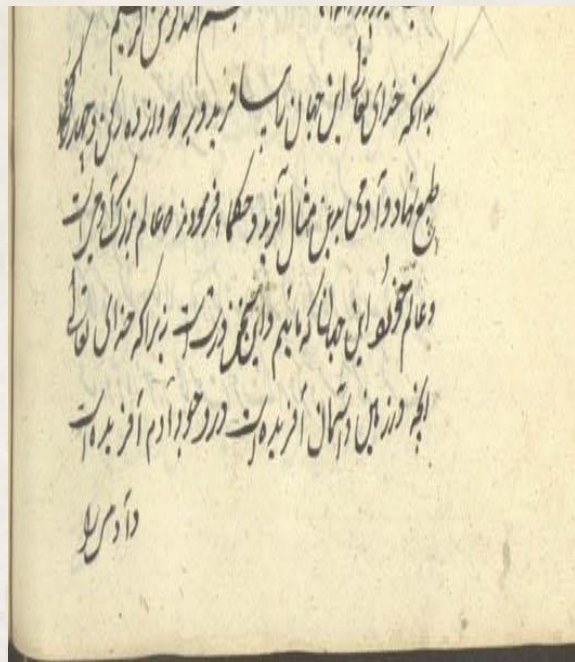 بسم الله الرحمن الرحیم
بدانکه خدای تعالی این جهان را بیافرید و بر دوازده رکن و چهار
طبع نهاد و آدمی بدین مثال آفرید و حکما فرموده عالم بزرگ آدمی است
و عالم خورد این جهان که مائیم و این سخن درست است زیرا که خدای تعالی
انچه در زمین و آسمان آفریده است در وجود آدم آفریده است
و آدمی را